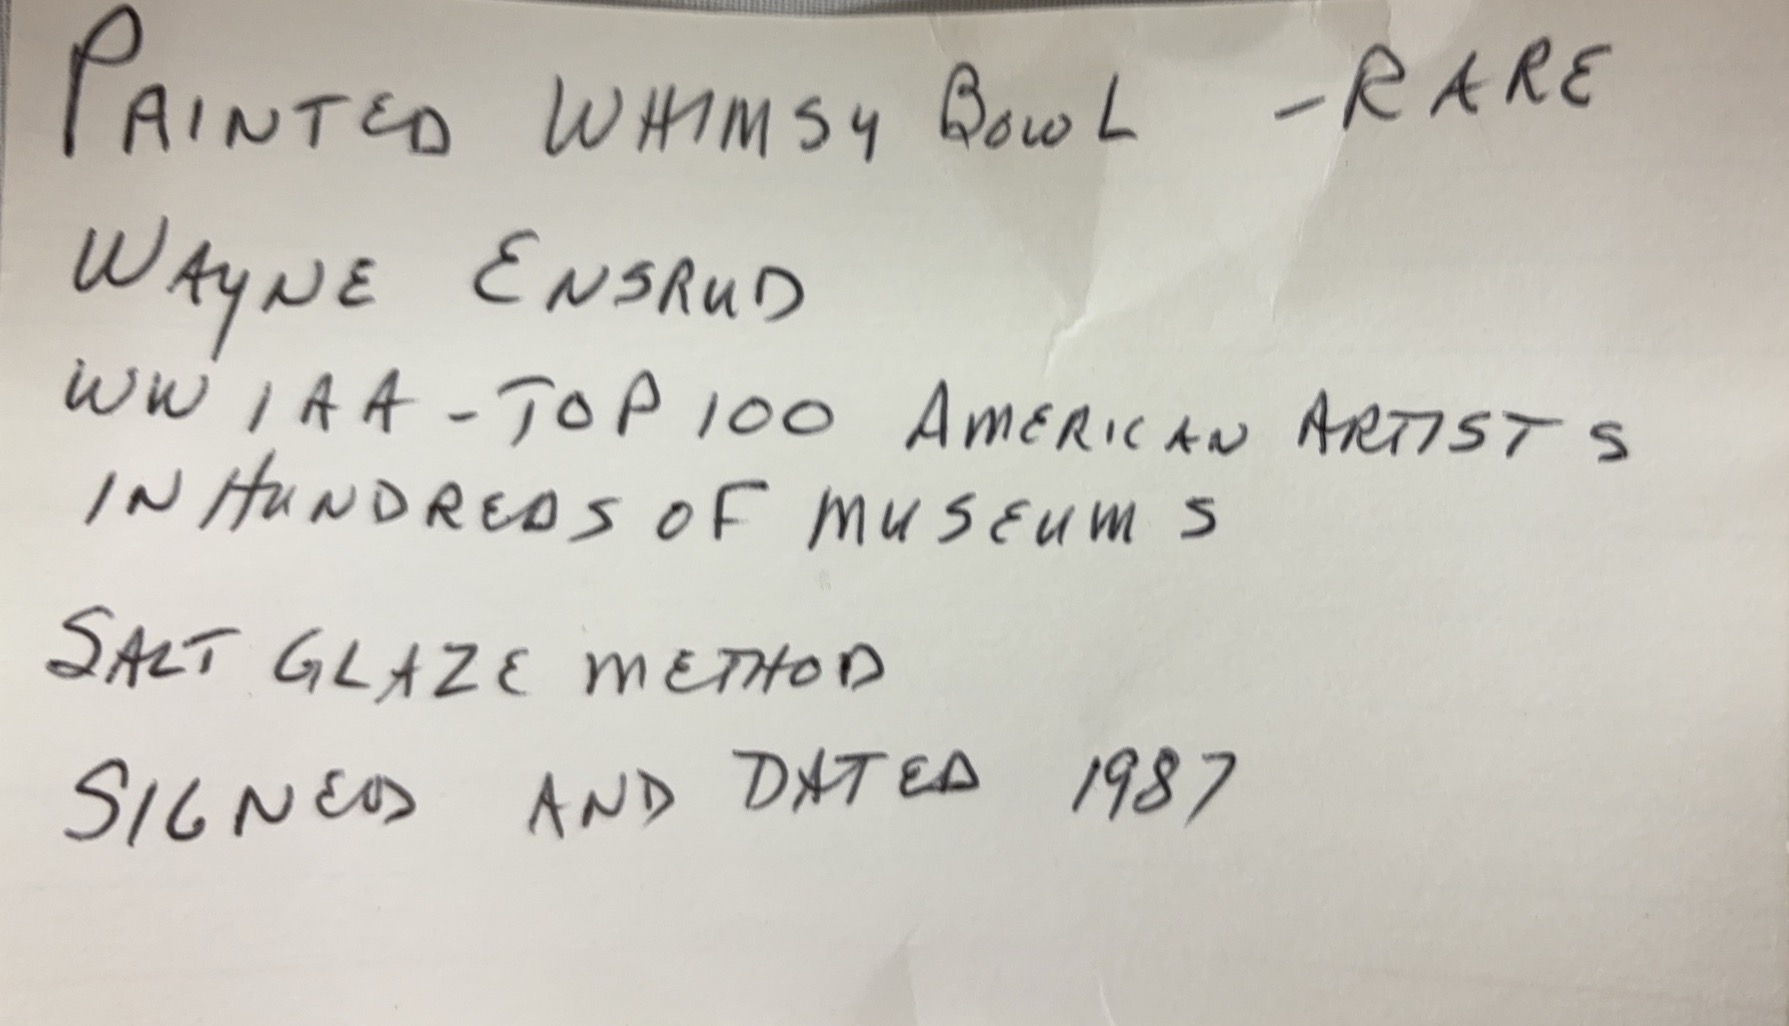 PAINTED WHIMSY BOWL - RARE
WAYNE ENSRUD
WW IAA - TOP 100 AMERICAN ARTISTS
IN HUNDREDS OF MUSEUMS
SALT GLAZE METHOD
SIGNED AND DATED 1987